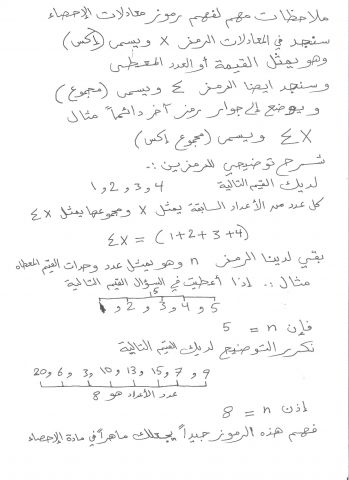 ملاحظات مهم لفهم رموز معادلات الإحصاء
سنجد في المعادلات الرمز X ويسمى (إكس)
وهو يمثل القيمة أو العدد المعطى
وسنجد ايضا الرمز Σ ويسمى (مجموع)
و يوضع إلى جوار رمز آخر دائماً مثال
ΣX ويسمى (مجموع إكس)
شرح توضيحي للرمزين :.
لديك القيم التالية 1 و 2 و 3 و 4
كل عدد من الأعداد السابقة يمثل X ومجموعها يمثل ΣX
ΣX = (1+2+3+4)
بقي لدينا الرمز n وهو يمثل عدد وحدات القيم المعطاه
مثال :. إذا أعطيت في السؤال القيم التالية
5 و 4 و 3 و 2 و 1
5
فإن n = 5
نكرر التوضيح لديك القيم التالية
9 و 7 و 15 و 13 و 10 و 3 و 6 و 20
عدد الأعداد هو 8
إذن n = 8
فهم هذه الرموز جيداً يجعلك ماهراً في مادة الإحصاء